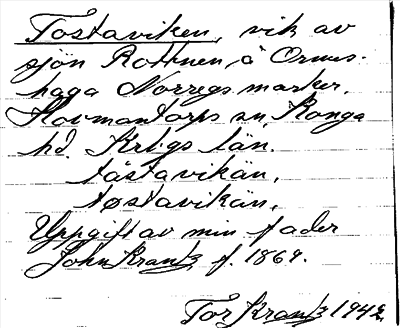 Tostaviken, vik av
sjön Rottnen, å Ormes-
haga Norregs marker.
Hovmantorps sn, Konga
hd. Krbgs län.
tåstavikän,
tøstavikän,
Uppgift av min fader
John Krantz f. 1869.
Tor Krantz 1942